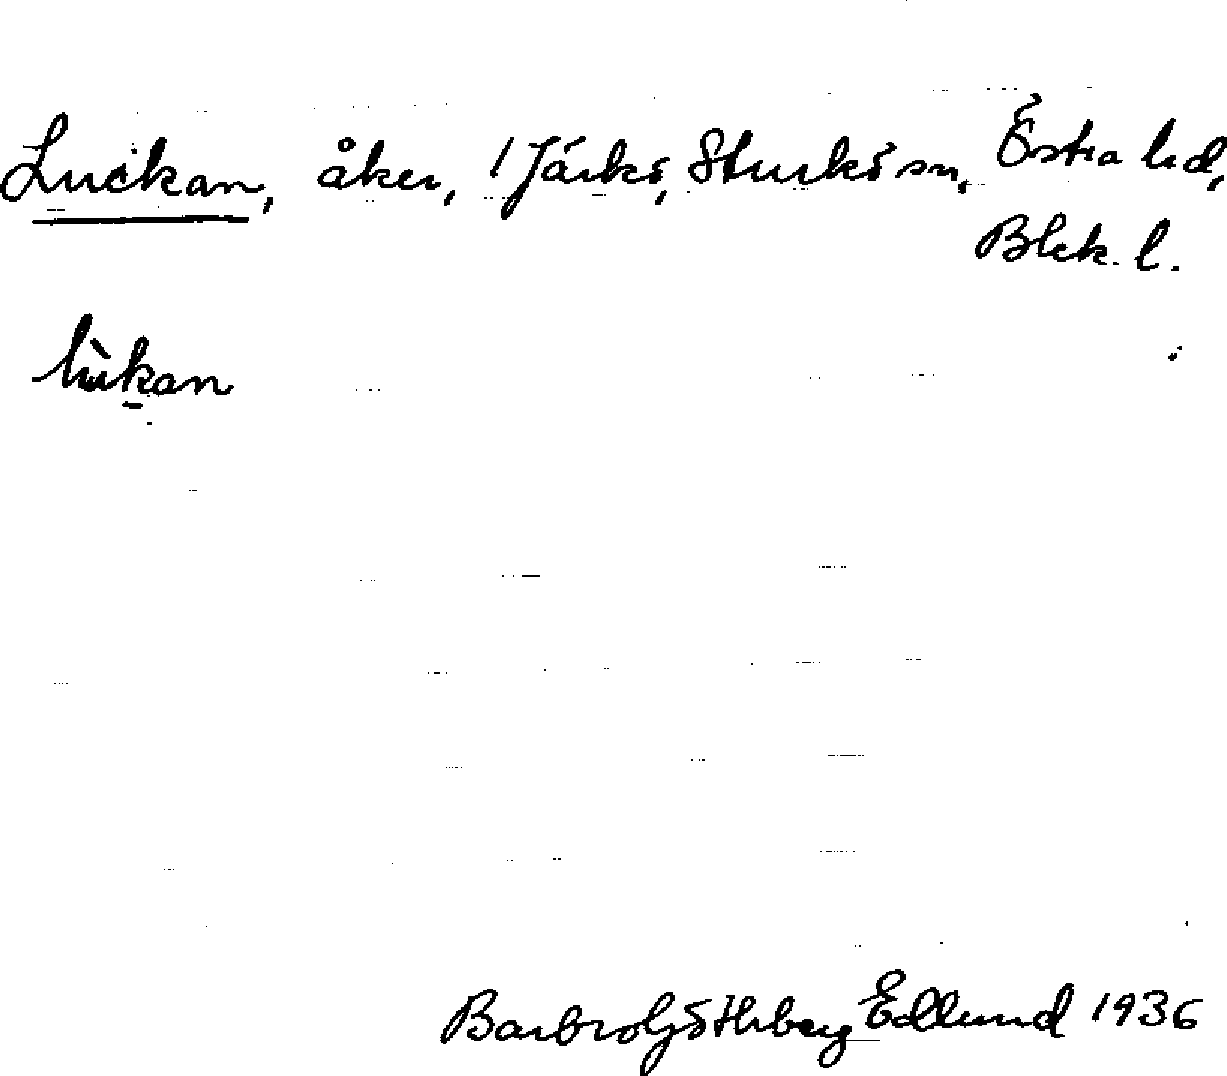 Luckan, åker, 1 Järkö, Sturkö sn, Östra hd,
Blek. l.
lùkan
Barbro Göthberg Edlund 1936